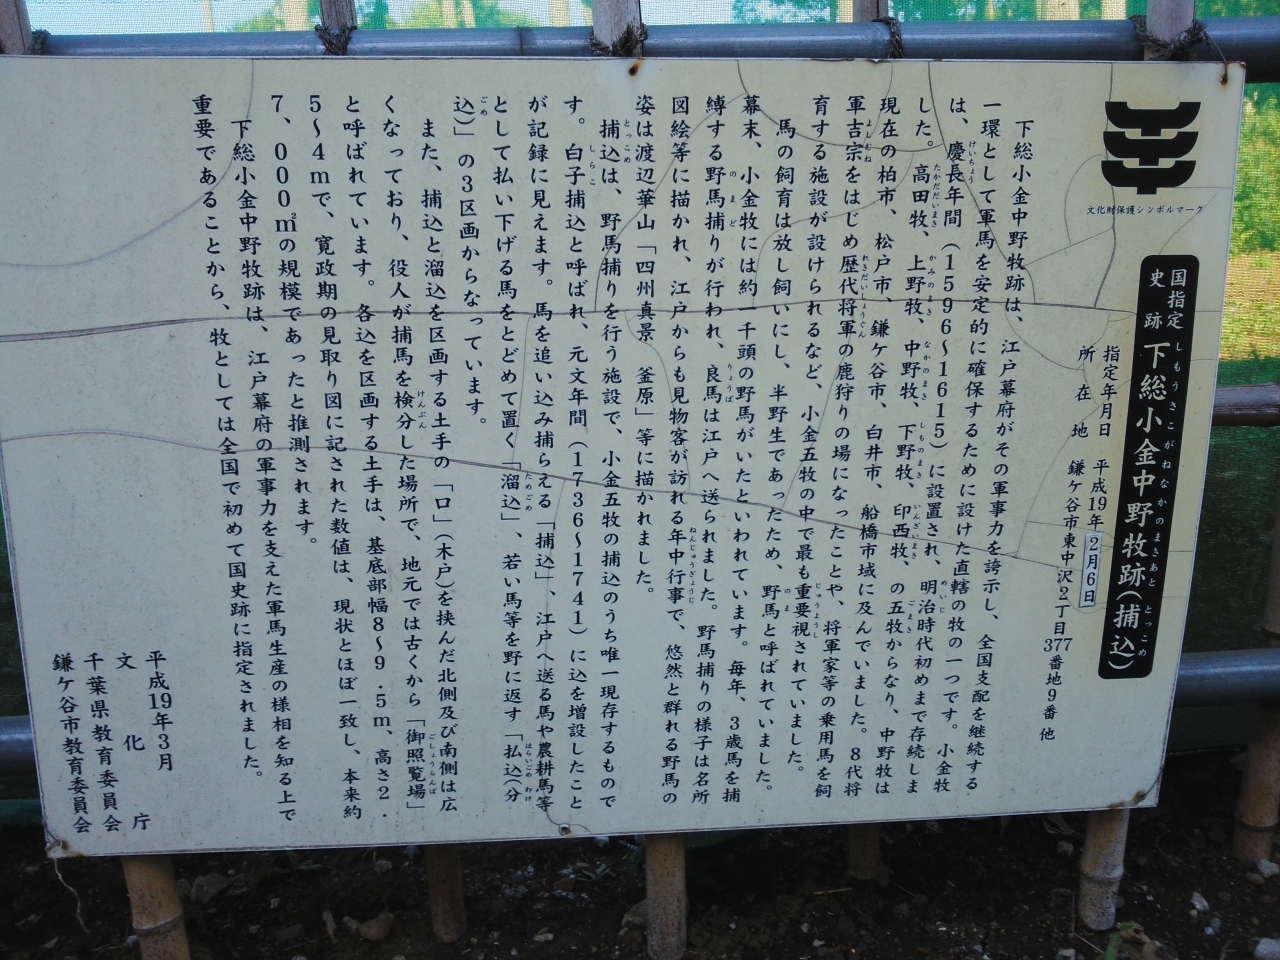 文化財保護シンボルマーク
国指定
史跡
下総小金中野牧跡(捕込)
しもうさこがねなかのまきあと とっこめ
指定年月日 平成19年2月6日
所在地 鎌ケ谷市東中沢2丁目377番地9番他
下総小金中野牧跡は、江戸幕府がその軍事力を誇示し、全国支配を継続する
一環として軍馬を安定的に確保するために設けた直轄の牧の一つです。小金牧
は、慶長年間(1596~1615)に設置され、明治時代初めまで存続しま
した。高田牧、上野牧、中野牧、下野牧、印西牧、の五牧からなり、中野牧は
現在の柏市、松戸市、鎌ケ谷市、白井市、船橋市域に及んでいました。8代将
軍吉宗をはじめ歴代将軍の鹿狩りの場になったことや、将軍家等の乗用馬を飼
育する施設が設けられるなど、小金五牧の中で最も重要視されていました。
馬の飼育は放し飼いにし、半野生であったため、野馬と呼ばれていました。
幕末、小金牧には約一千頭の野馬がいたといわれています。毎年、3歳馬を捕
縛する野馬捕りが行われ、良馬は江戸へ送られました。野馬捕りの様子は名所
図絵等に描かれ、江戸からも見物客が訪れる年中行事で、悠然と群れる野馬の
姿は渡辺華山「四州真景 釜原」等に描かれました。
捕込は、野馬捕りを行う施設で、小金五牧の捕込のうち唯一現存するもので
す。白子捕込と呼ばれ、元文年間(1736~1741)に込を増設したこと
が記録に見えます。馬を追い込み捕らえる「捕込」、江戸へ送る馬や農耕馬等
として払い下げる馬をとどめて置く「溜込」、若い馬等を野に返す「払込(分
込)」の3区画からなっています。
また、捕込と溜込を区画する土手の「口」(木戸)を挟んだ北側及び南側は広
くなっており、役人が捕馬を検分した場所で、地元では古くから「御照覧場」
と呼ばれています。各込を区画する土手は、基底部幅8~9.5m、高さ2.
5~4mで、寛政期の見取り図に記された数値は、現状とほぼ一致し、本来約
7,000㎡の規模であったと推測されます。
下総小金中野牧跡は、江戸幕府の軍事力を支えた軍馬生産の様相を知る上で
重要であることから、牧としては全国で初めて国史跡に指定されました。
平成19年3月
文化庁
千葉県教育委員会
鎌ケ谷市教育委員会